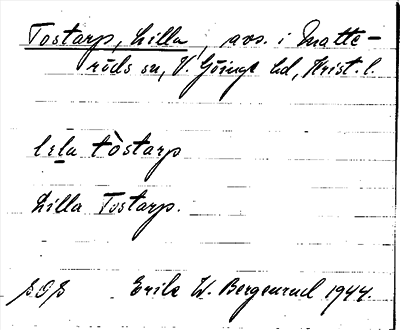 Tostarp, Lilla, avs. i Matte-
röds sn, V. Göinge hd, Krist. l.
lsla tòstarp
Lilla Tostarp.
Erik W. Bergenrud 1944.